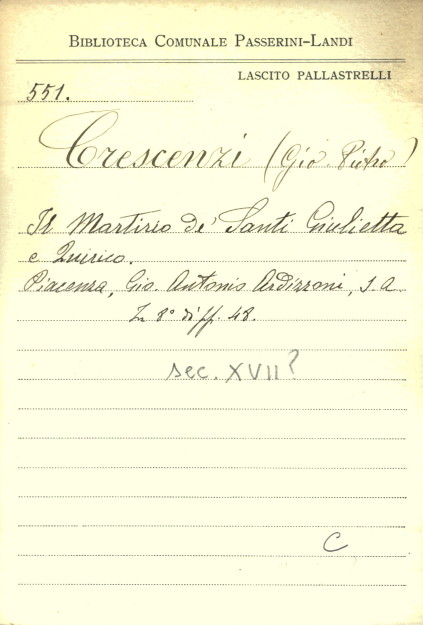 BIBLIOTECA COMUNALE PASSERINI-LANDI
LASCITO PALLASTRELLI
551.
Crescenzi (Gio. Pietro)
Il Martirio de' Santi Giulietta
e Quirico.
Piacenza, Gio. Antonio Ardizzoni, s. a.
In 8° di ff. 48.
sec. XVII?
C